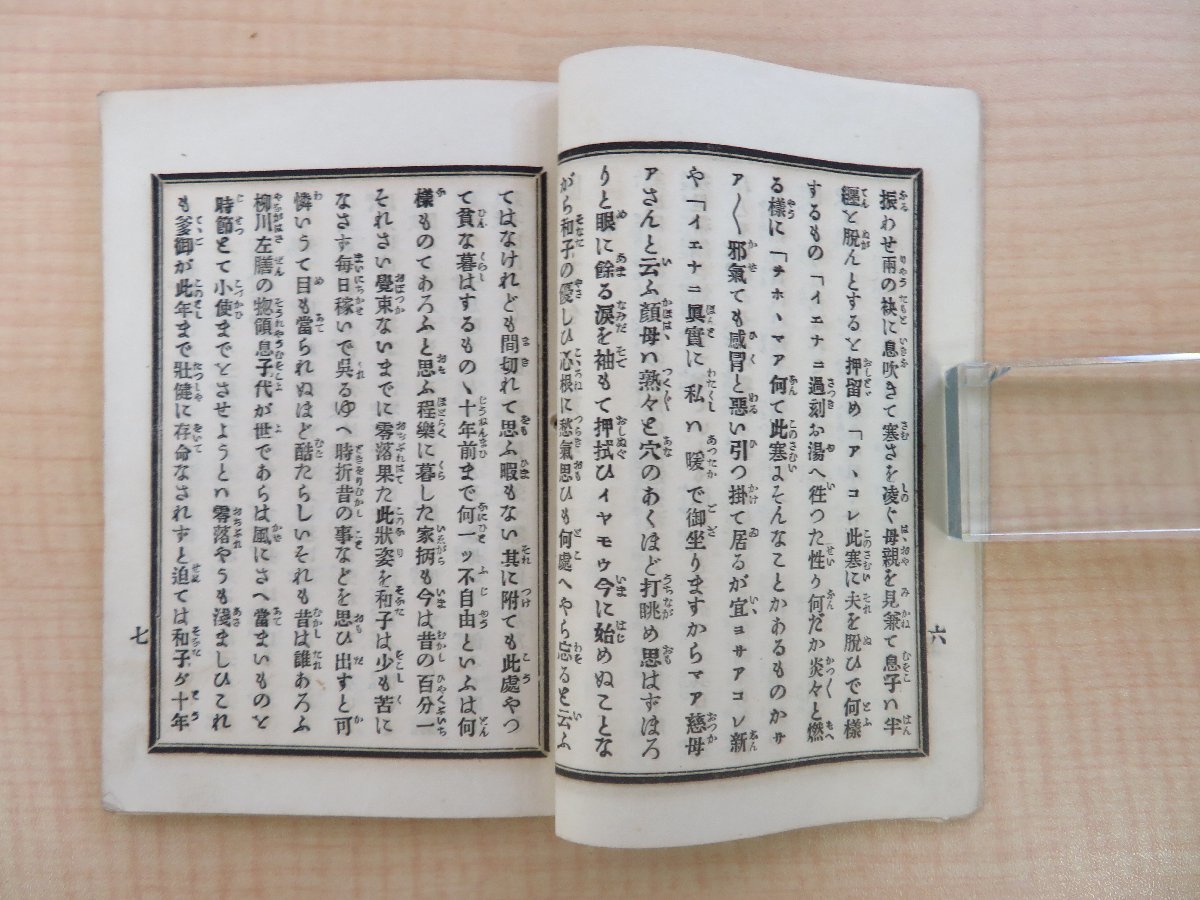 振わせ両の袂に息吹きて寒さを凌ぐ母親を見兼て息子ハ半
纏と脱んとすると押留め「アヽコレ此寒に夫を脱ひで何樣
するもの「イエナニ過刻お湯へ徃つた性り何だか炎々と燃
る樣に「ヲホヽマア何て此寒よそんなことかあるものかサ
ア〱邪氣ても感冒と惡い引つ掛て居るが宜ヨサアコレ新
や「イエナニ眞實に私ハ暖で御坐りますからマア慈母
アさんと云ふ顔母ハ熟々と穴のあくほど打眺め思はずほろ
りと眼に餘る涙を袖もて押拭ひイヤモウ今に始めぬことな
がら和子の優しひ心根に愁氣思ひも何處へやら忘ると云ふ
六
てはなけれども間切れて思ふ暇もない其に附ても此處やつ
て貧な暮はするものヽ十年前まで何一ッ不自由といふは何
樣ものてあろふと思ふ程樂に暮した家柄も今は昔の百分一
それさい覺束ないまでに零落果た此狀姿を和子は少も苦に
なさす毎日稼いで呉るゆへ時折昔の事などを思ひ出すと可
憐いうて目も當られぬほど酷たらしいそれも昔は誰あろふ
柳川左膳の惣領息子代が世であらは風にさへ當まいものと
時節とて小使までとさせようとハ零落やうも淺ましひこれ
も爹御が此年まで壯健に存命なされすと迫ては和子が十年
七